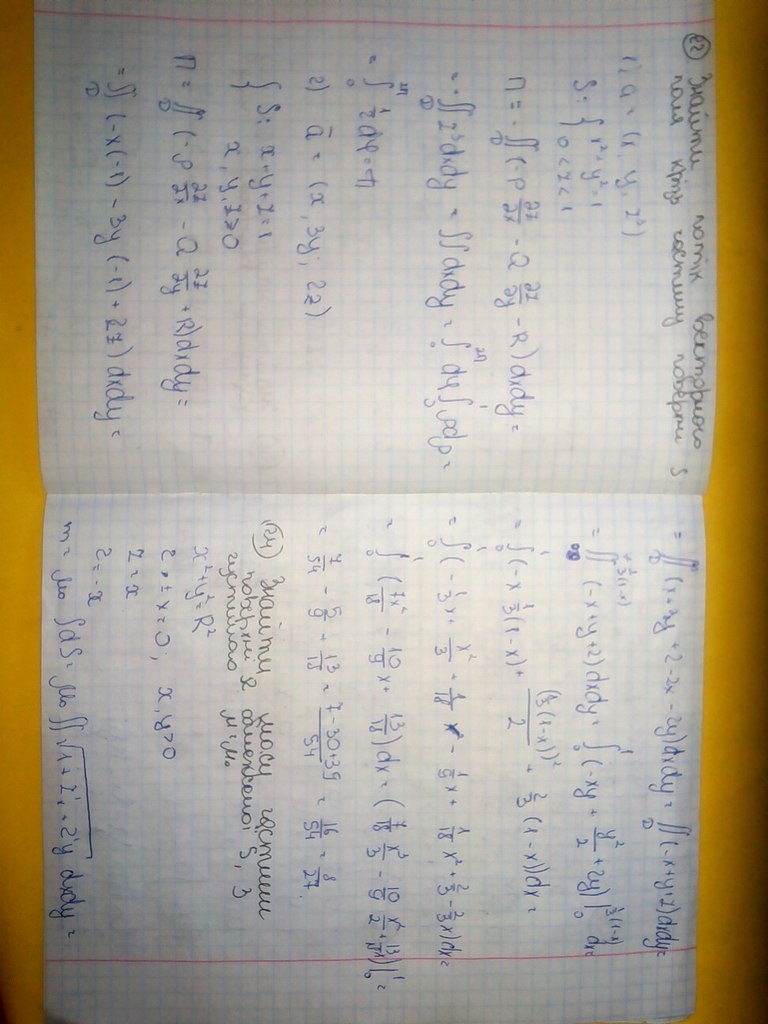 22 Знайти потік векторного
поля крізь частину поверхні S
1) a = (x, y, z³)
S: { x² + y² = 1
0 < z < 1
П = -∬_D (-P ∂z/∂x - Q ∂z/∂y - R) dxdy =
= -∬_D z³ dxdy = ∬ dxdy = ∫₀^2π dφ ∫₀^1 ρdρ =
= ∫₀^2π 1/2 dφ = π
2) a̅ = (x, 3y, 2z)
{ S: x + y + z = 1
x, y, z ≥ 0
П = ∬_D (-P ∂z/∂x - Q ∂z/∂y + R) dxdy =
= ∬_D (-x(-1) - 3y(-1) + 2z) dxdy =
= ∬_D (x + 3y + 2 - 2x - 2y) dxdy = ∬_D (-x + y + 2) dxdy =
= ∬ (-x + y + 2) dxdy = ∫₀^1 (-xy + y²/2 + 2y) |₀^{1/3(1-x)} dx =
= ∫₀^1 (-x 1/3 (1-x) + (1/3(1-x))²/2 + 2/3 (1-x)) dx =
= ∫₀^1 (-1/3 x + x²/3 + 1/18 - 1/9 x + 1/18 x² + 2/3 - 2/3 x) dx =
= ∫₀^1 (7x²/18 - 10/9 x + 13/18) dx = (7/18 x³/3 - 10/9 x²/2 + 13/18 x) |₀^1 =
= 7/54 - 5/9 + 13/18 = 7-30+39/54 = 16/54 = 8/27.
24 Знайти масу частини
поверхні з обмеженої S, з
густиною μ = μ₀
x² + y² = R²
z ± x = 0; x, y > 0
z = x
z = -x
m = μ₀ ∫ dS = μ₀ ∬ √1 + z'ₓ + z'y dxdy =